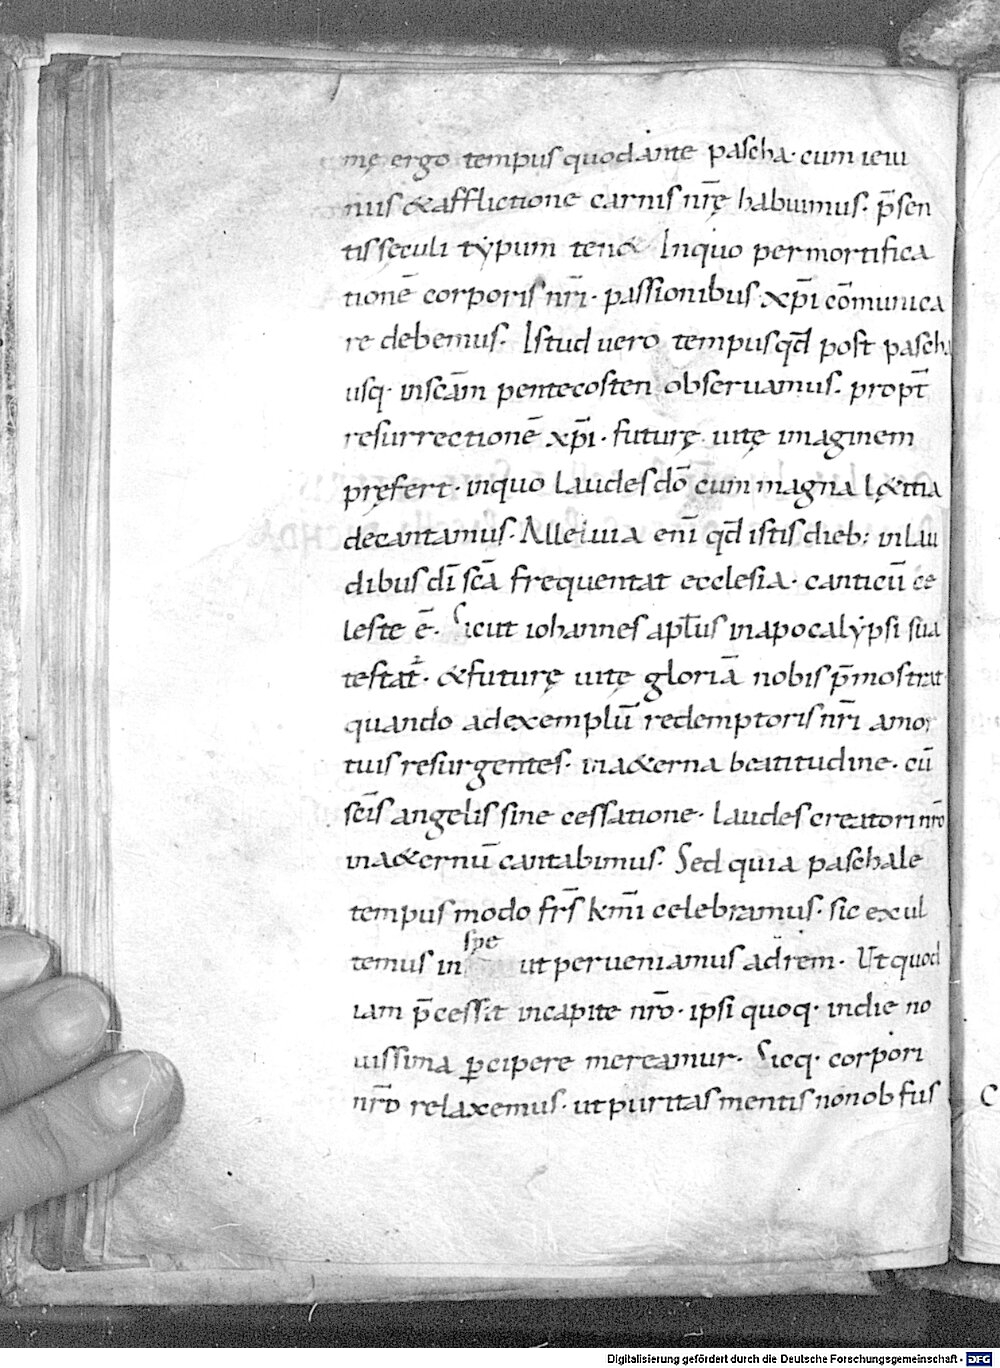 mę ergo tempus quod ante pascha· cum ieiu
niis & afflictione carnis nr̄ę habuimus· p̄sen
tis sęculi tẏpum ten& In quo per mortifica
tionē corporis nr̄i· passionibus xp̄i cōmunica
re debemus· Istud uero tempus qd̄ post pascha
usq· in scām pentecosten obseruamus· propt̄
resurrectionē xp̄i· futurę uitę imaginem
pręfert· in quo laudes dō cum magna l&itia
decantamus· Alleluia enī qd̄ istis dieb; in lau
dibus dī scā frequentat ecclesia· canticū ce
leste ē· Sicut iohannes apl̄us in apocalẏpsi sua
testat̄· & futurę uitę gloriā nobis p̄mostrat
quando ad exemplū redemptoris nr̄i a mor
tuis resurgentes· in a&erna beatitudine· cū
scīs angelis sine cessatione· laudes creatori nr̄o
in a&ernū cantabimus· Sed quia paschale
tempus modo fr̄s km̄i celebramus· sic exul
temus in spe ut perueniamus ad rem· Ut quod
iam p̄cessit in capite nr̄o· ipsi quoq· in die no
uissima ꝑcipere mereamur· Sicq· corpori
nr̄o relaxemus· ut puritas mentis non obfus
C
Digitalisierung gefördert durch die Deutsche Forschungsgemeinschaft - DFG